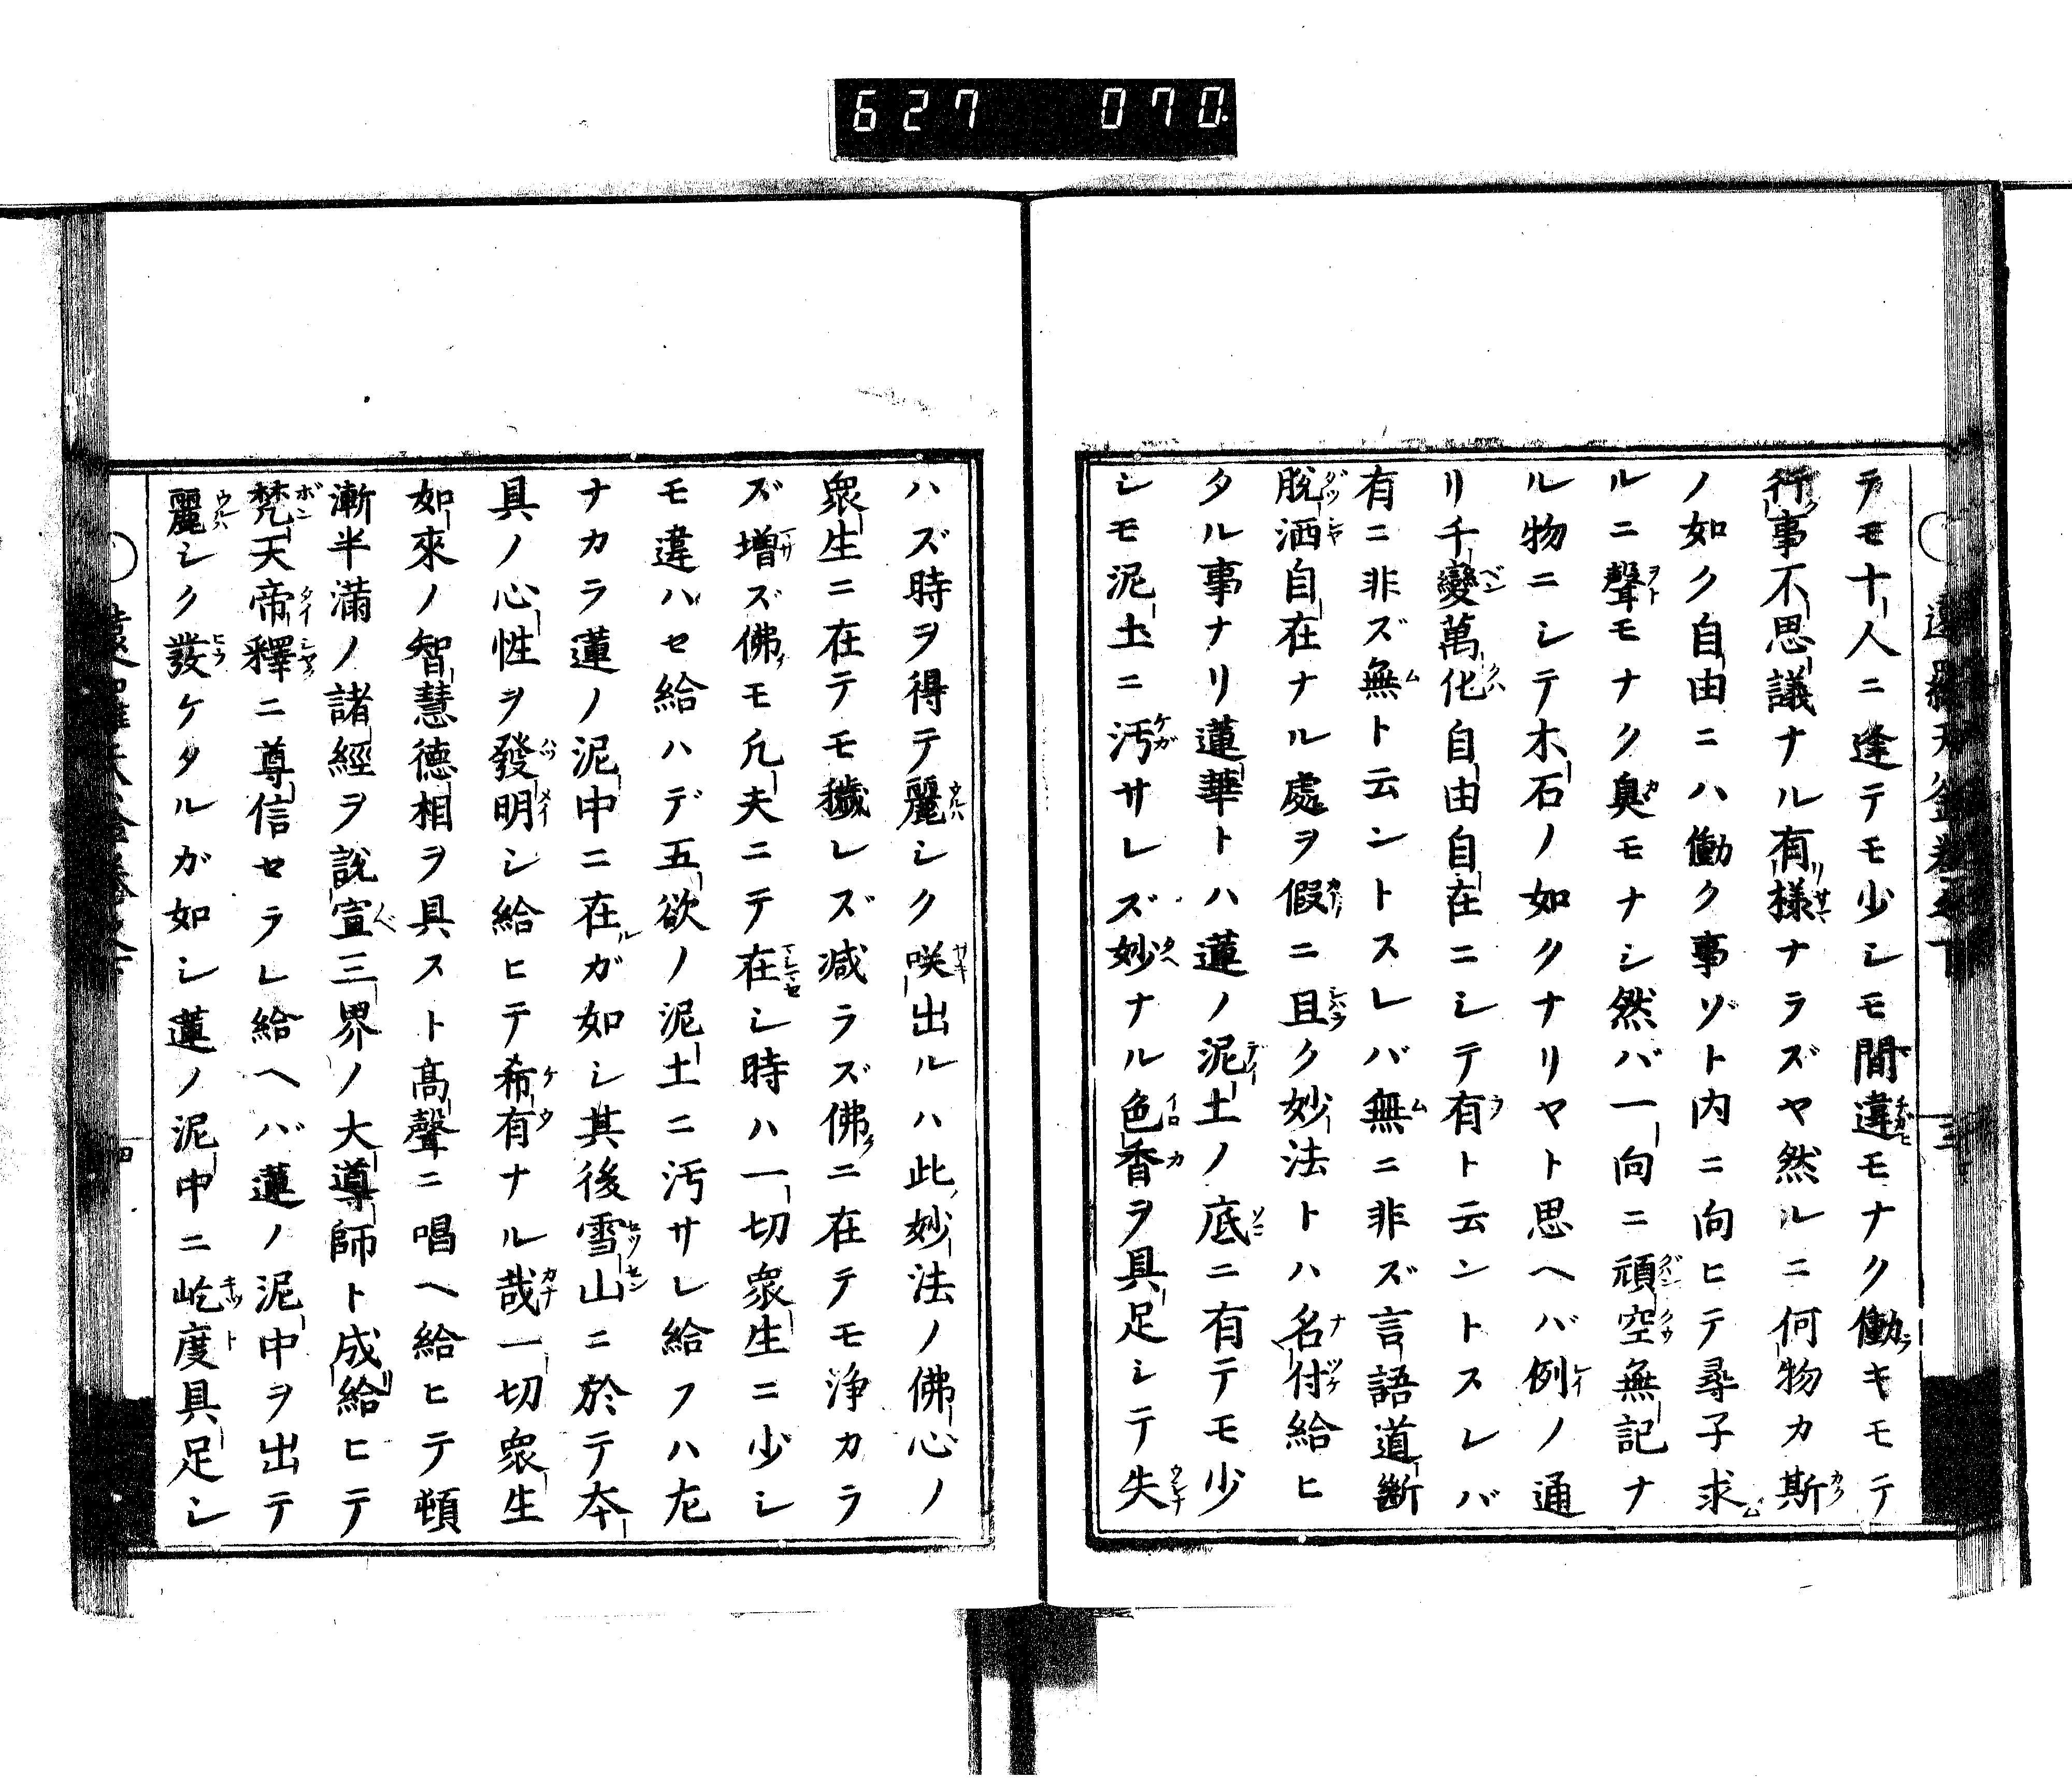 627 070
テモ十人ニ逢テモ少シモ間違モナク働キモテ
行事不思議ナル有様ナラズヤ然ルニ何物カ斯
ノ如ク自由ニハ働ク事ゾト内ニ向ヒテ尋子求
ルニ聲モナク臭モナシ然バ一向ニ頑空無記ナ
ル物ニシテ木石ノ如クナリヤト思ヘバ例ノ通
リ千變萬化自由自在ニシテ有ト云ントスレバ
有ニ非ズ無ト云ントスレバ無ニ非ズ言語道斷
脫洒自在ナル處ヲ假ニ且ク妙法トハ名付給ヒ
タル事ナリ蓮華トハ蓮ノ泥土ノ底ニ有テモ少
シモ泥土ニ汚サレズ妙ナル色香ヲ具足シテ失
ハズ時ヲ得テ麗シク咲出ルハ此妙法ノ佛心ノ
衆生ニ在テモ穢レズ減ラズ佛ニ在テモ淨カラ
ズ增ズ佛モ凢夫ニテ在シ時ハ一切衆生ニ少シ
モ違ハセ給ハデ五欲ノ泥土ニ汚サレ給フハ尤
ナカラ蓮ノ泥中ニ在ガ如シ其後雪山ニ於テ夲
具ノ心性ヲ發明シ給ヒテ希有ナル哉一切衆生
如來ノ智慧德相ヲ具スト高聲ニ唱ヘ給ヒテ頓
漸半滿ノ諸經ヲ說宣三界ノ大導師ト成給ヒテ
梵天帝釋ニ尊信セラレ給ヘバ蓮ノ泥中ヲ出テ
麗シク發ケタルガ如シ蓮ノ泥中ニ屹度具足シ
四